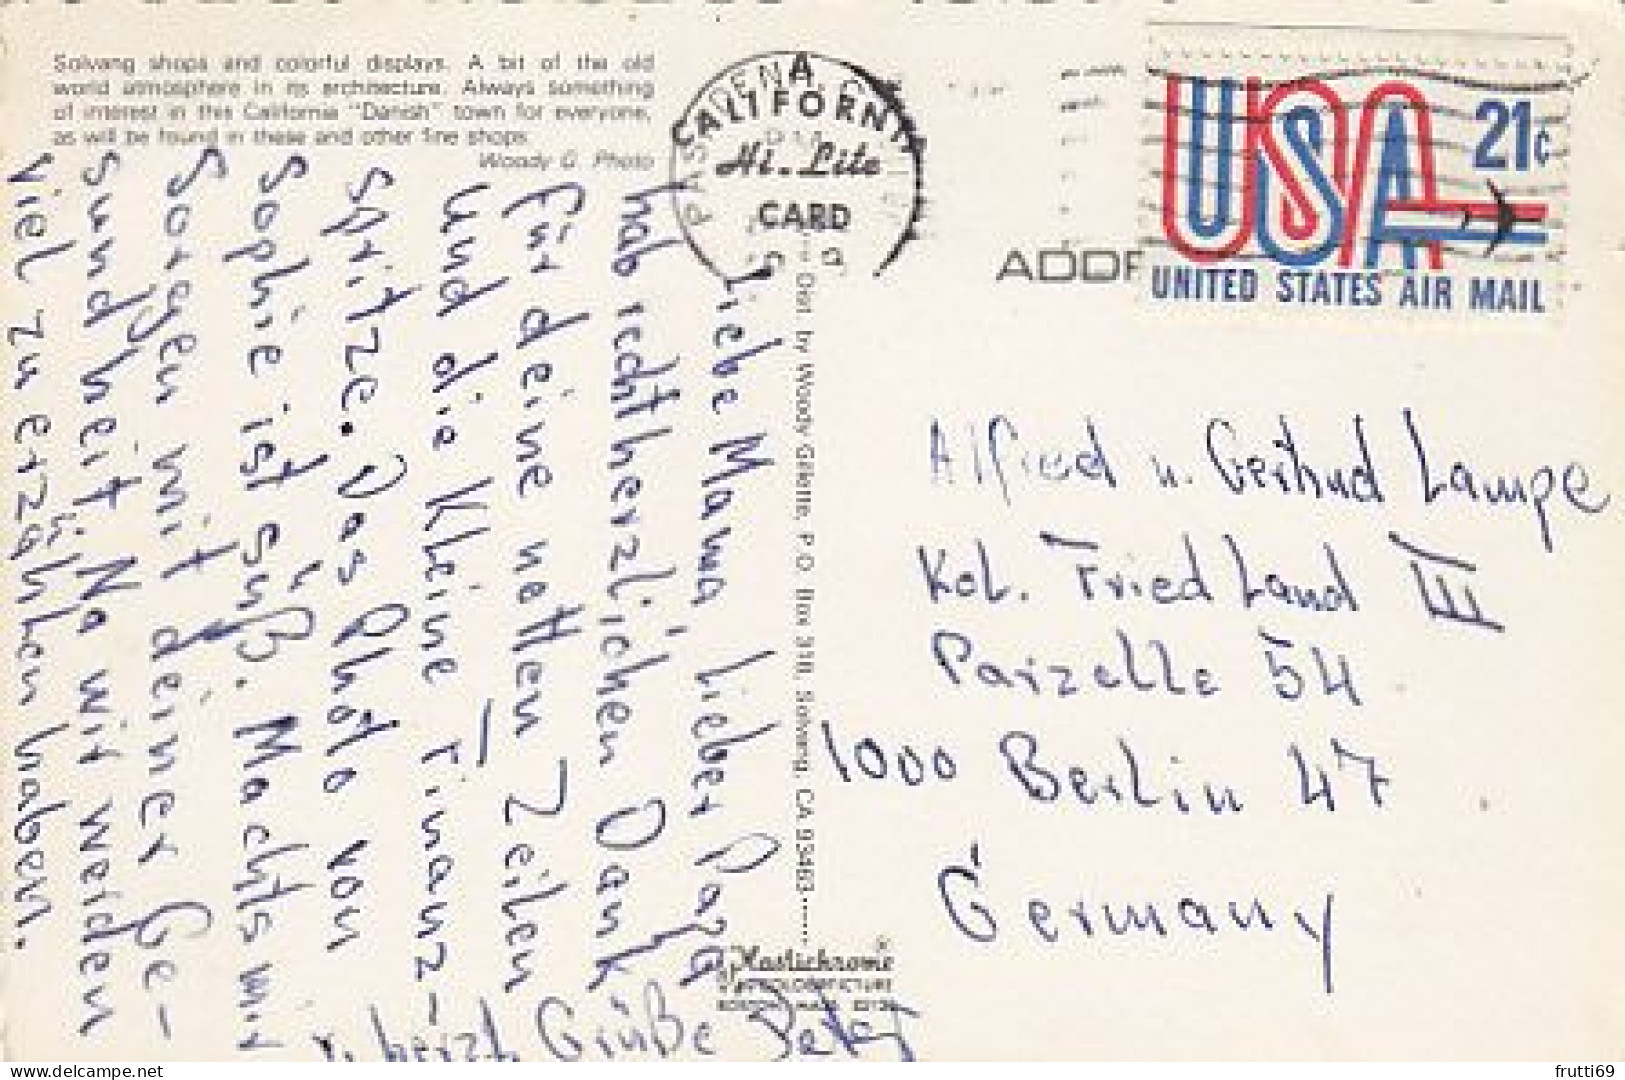 Solvang shops and colorful displays. A bit of the old
world atmosphere in its architecture. Always something
of interest in this California "Danish" town for everyone,
as will be found in these and other fine shops.
Woody G. Photo
PASADENA, CA
CALIFORNIA
Hi-Lite
CARD
USA
21c
UNITED STATES AIR MAIL
ADDR
Liebe Mama, Lieber Papa
hab recht herzlichen Dank
für deine netten Zeilen
und die kleine Finanz-
spritze. Das Photo von
Sophie ist süß. Machts mir
Sorgen mit deiner Ge-
sundheit. Na wir werden
viel zu erzählen haben.
herzl. Grüße Peter
Dist. by Woody Gillette, P.O. Box 318, Solvang, CA 93463
Plastichrome®
Alfred u. Gertrud Lampe
Kol. Friedland III
Parzelle 54
1000 Berlin 47
Germany
delcampe.net
frutti69